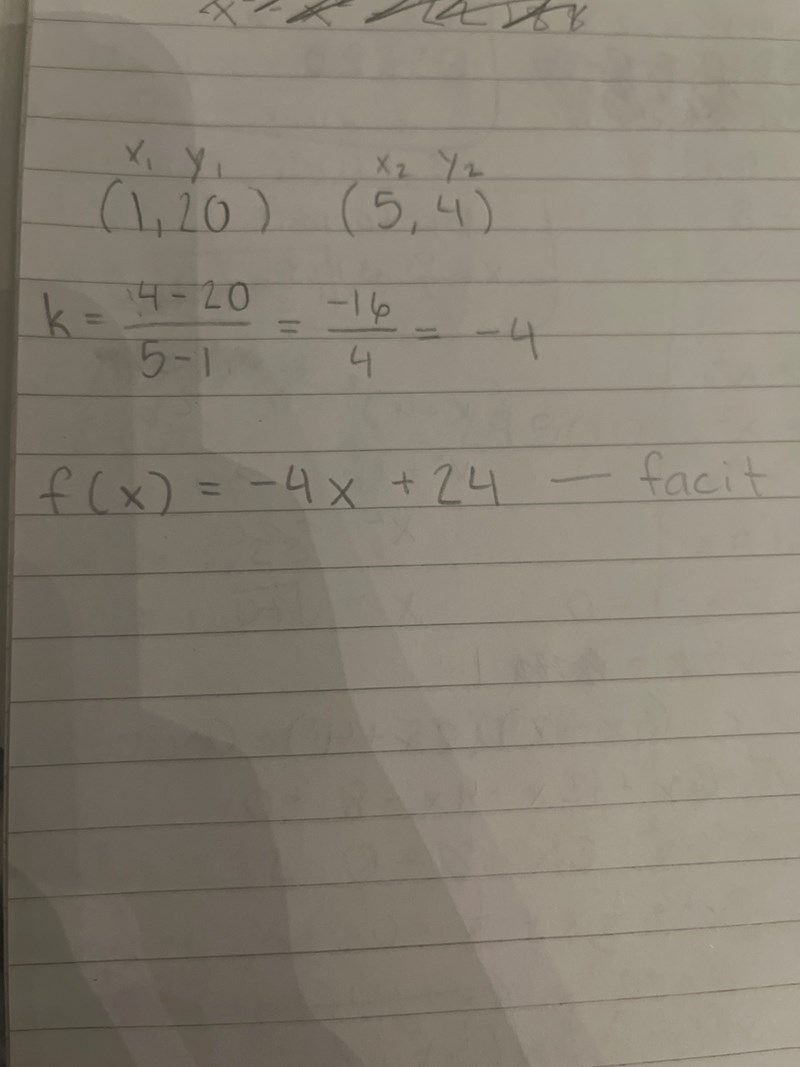 x₁ y₁ x₂ y₂
(1,20) (5,4)
k = 4-20/5-1 = -16/4 = -4
f(x) = -4x + 24 — facit